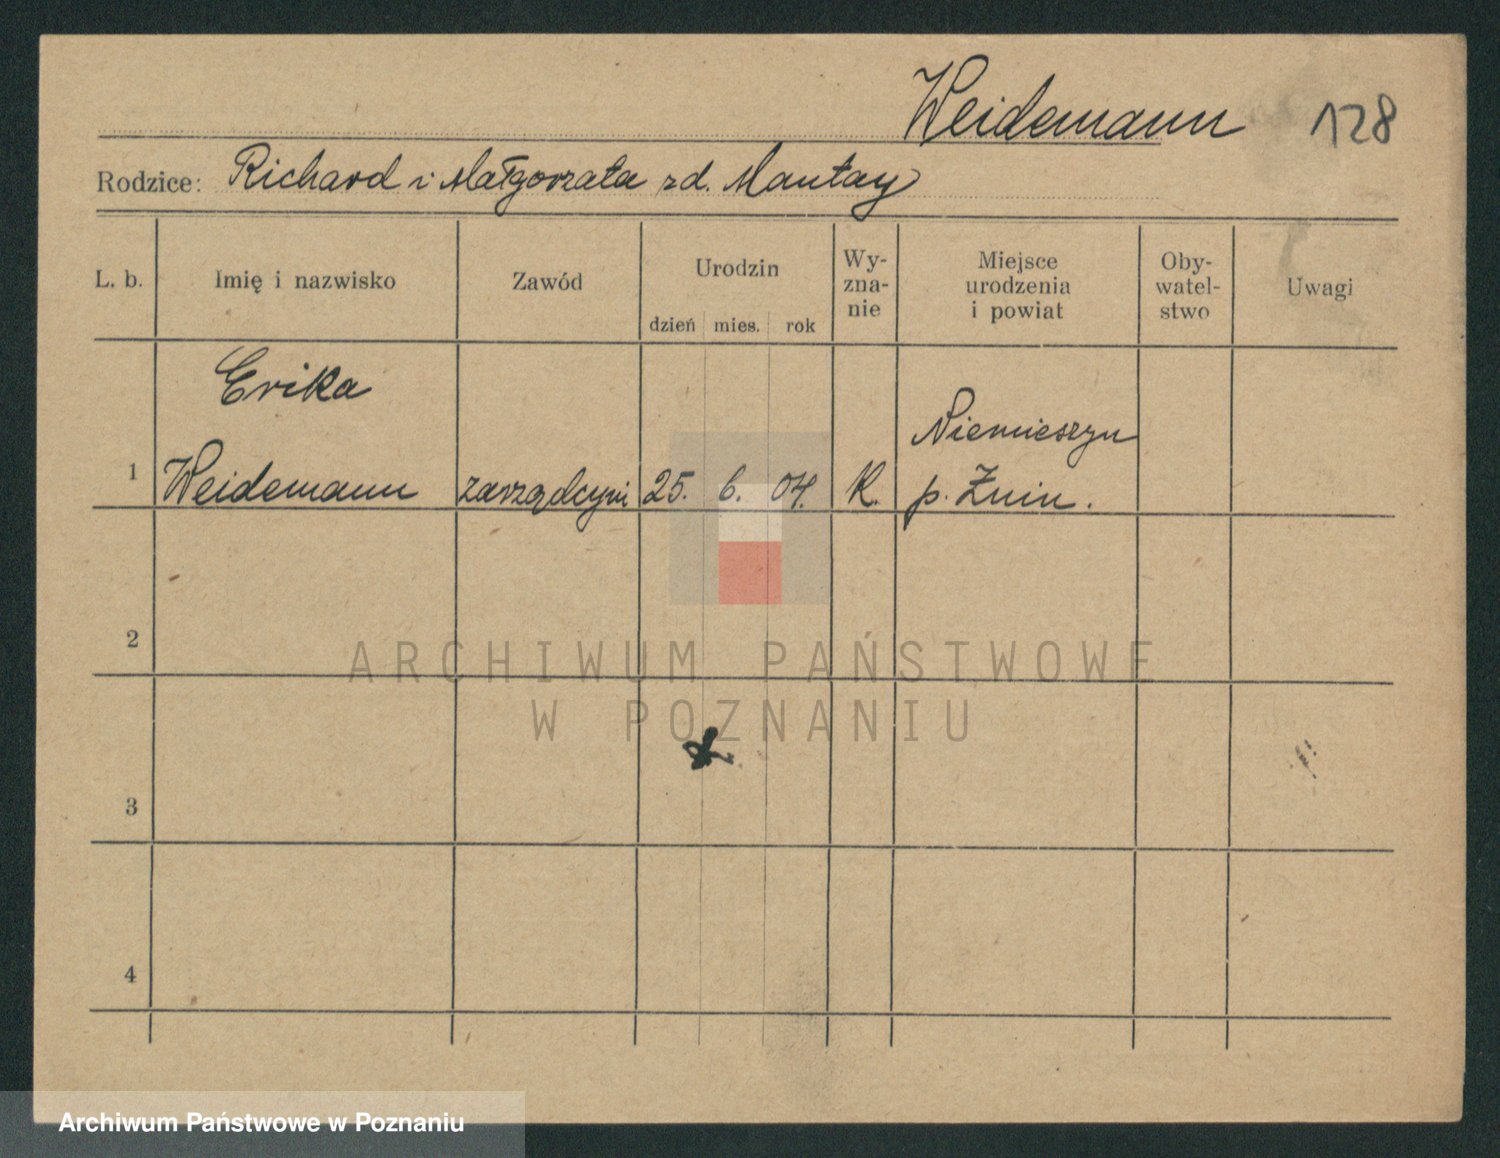 Weidemann 128
Rodzice: Richard i Małgorzata zd. Mantay
L. b. Imię i nazwisko Zawód Urodzin dzień mies. rok Wy-zna-nie Miejsce urodzenia i powiat Oby-watel-stwo Uwagi
Erika
Niemieszyn
1 Weidemann zarządczyni 25. 6. 04. K. p. Żnin.
2
ARCHIWUM PAŃSTWOWE
W POZNANIU
3
4
Archiwum Państwowe w Poznaniu